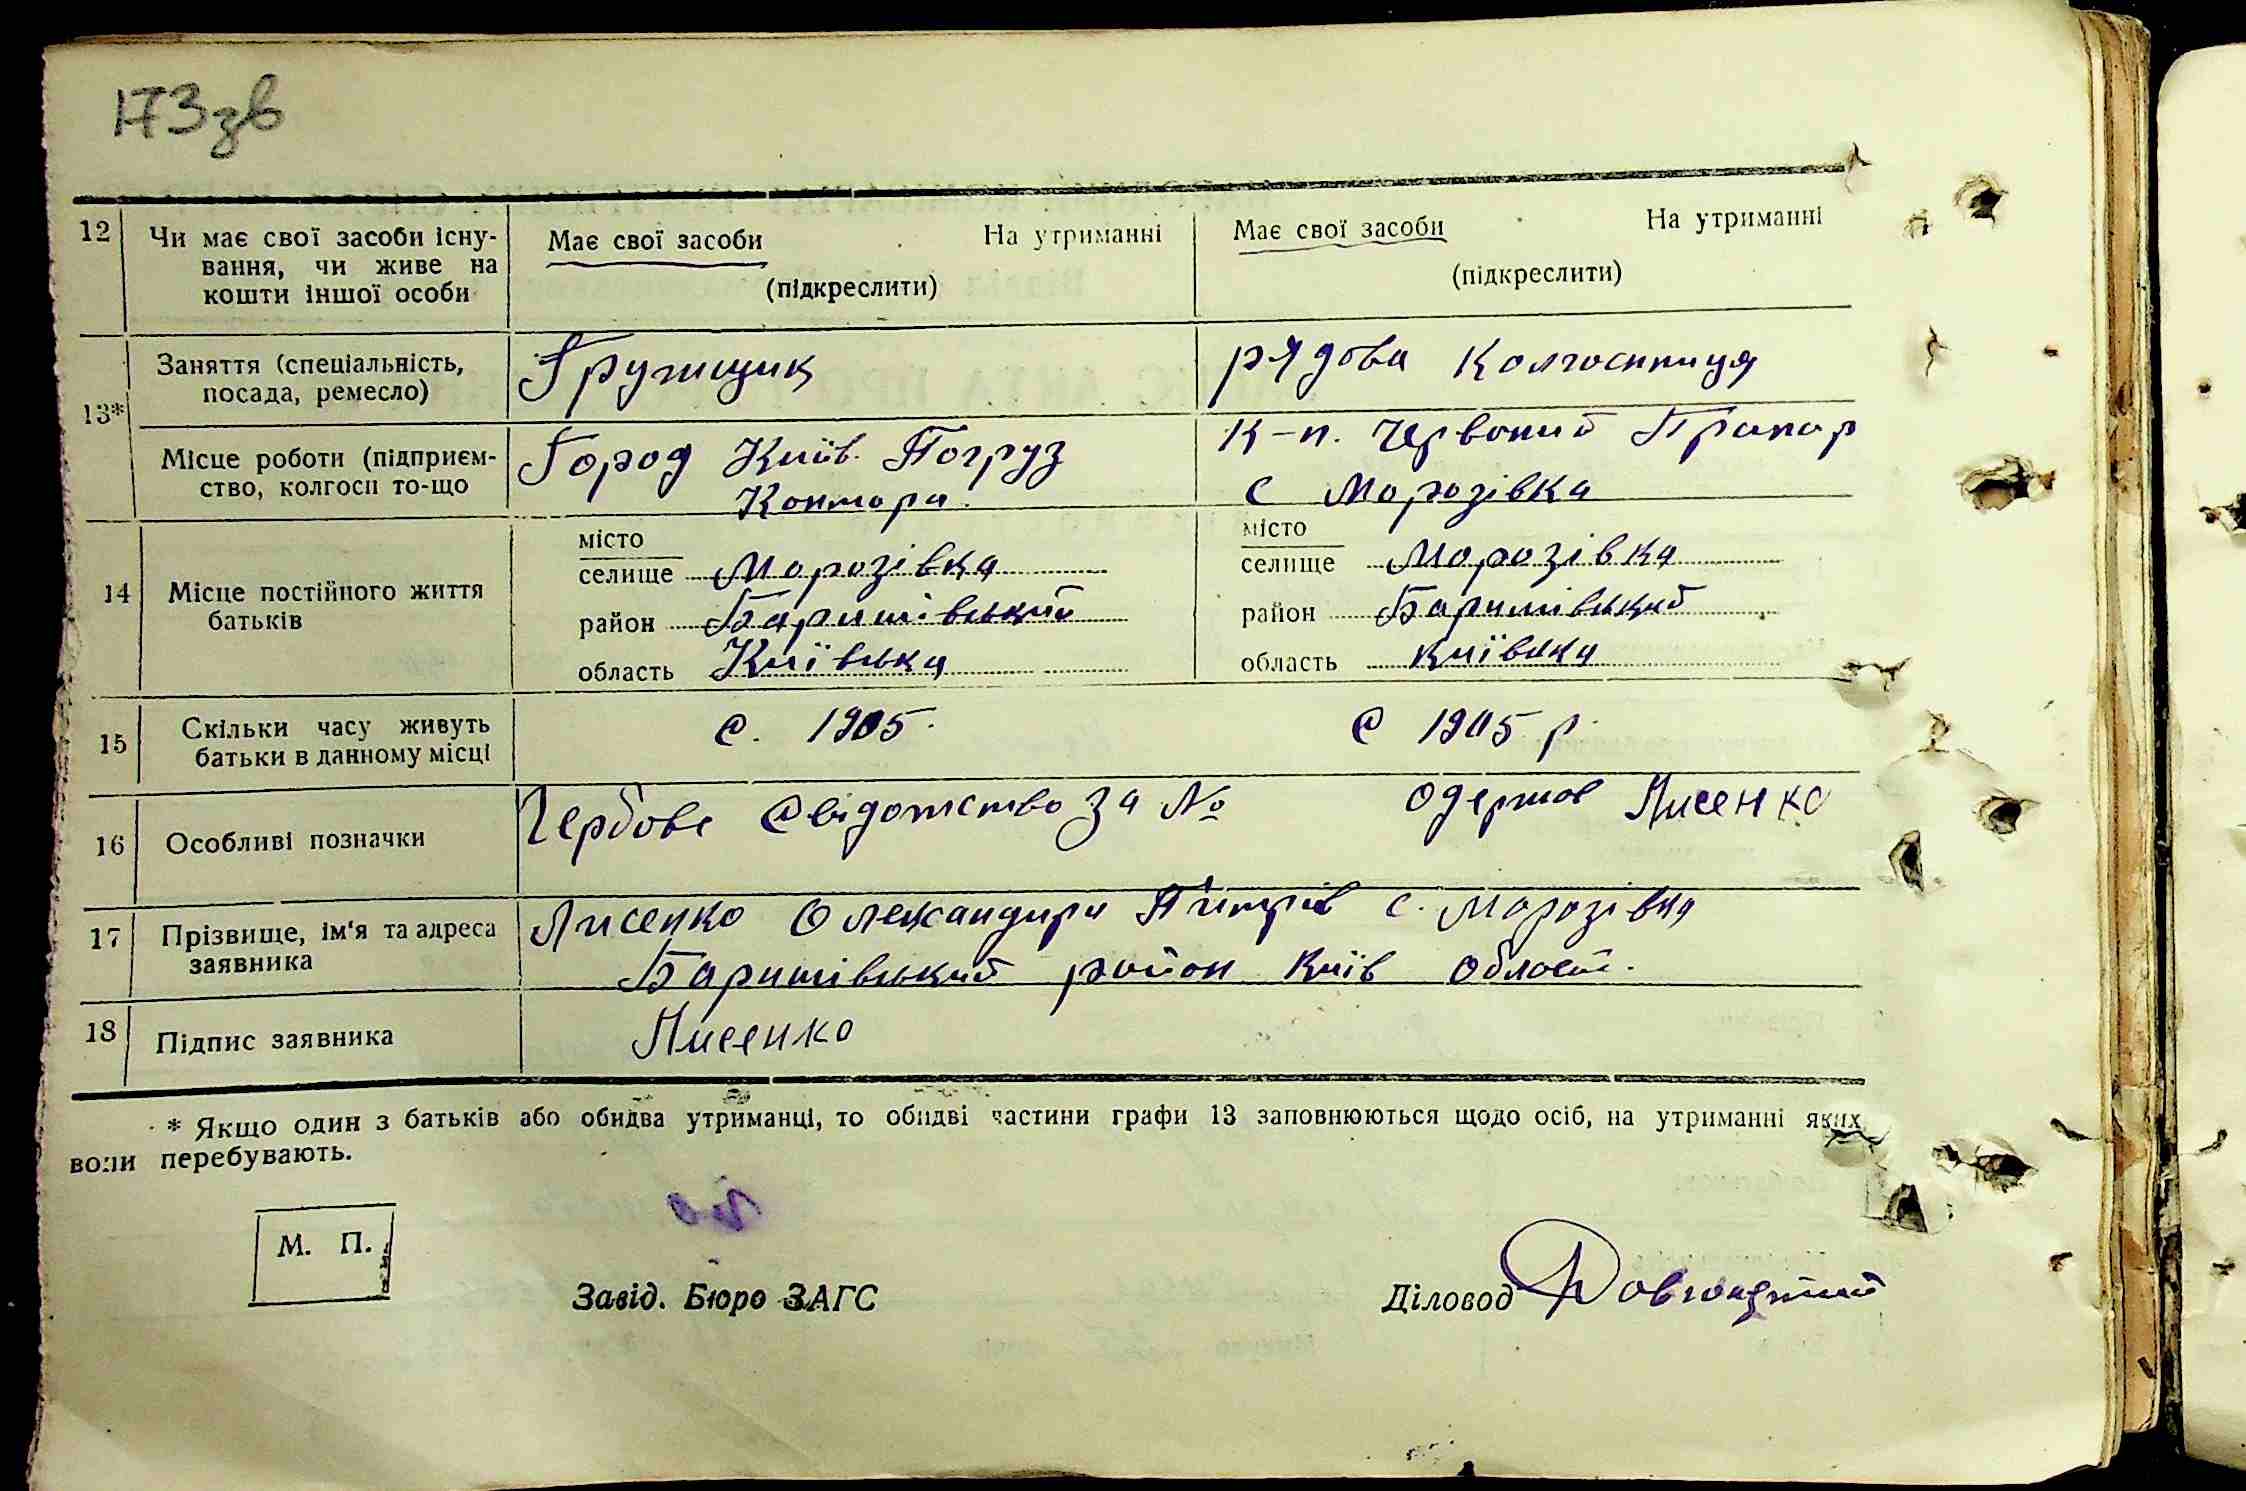 173зв
12 Чи має свої засоби існу-
вання, чи живе на
кошти іншої особи
Має свої засоби На утриманні
(підкреслити)
Має свої засоби На утриманні
(підкреслити)
13*
Заняття (спеціальність,
посада, ремесло)
Грузищик
рядова колгоспниця
Місце роботи (підприєм-
ство, колгосп то-що
Город Київ. Погруз
Контора.
К-п. Червоний Прапор
с Морозівка
14 Місце постійного життя
батьків
місто
селище Морозівка
район Баришівський
область Київська
місто
селище Морозівка
район Баришівський
область київська
15 Скільки часу живуть
батьки в данному місці
с. 1905.
с 1905 р.
16 Особливі позначки
Гербове свідотство за № одержав Лисенко
17 Прізвище, ім'я та адреса
заявника
Лисенко Олександра с. Морозівка
Баришівський район Київ област.
18 Підпис заявника
Лисенко
* Якщо один з батьків або обидва утриманці, то обидві частини графи 13 заповнюються щодо осіб, на утриманні яких
вони перебувають.
М. П.
Завід. Бюро ЗАГС
Діловод